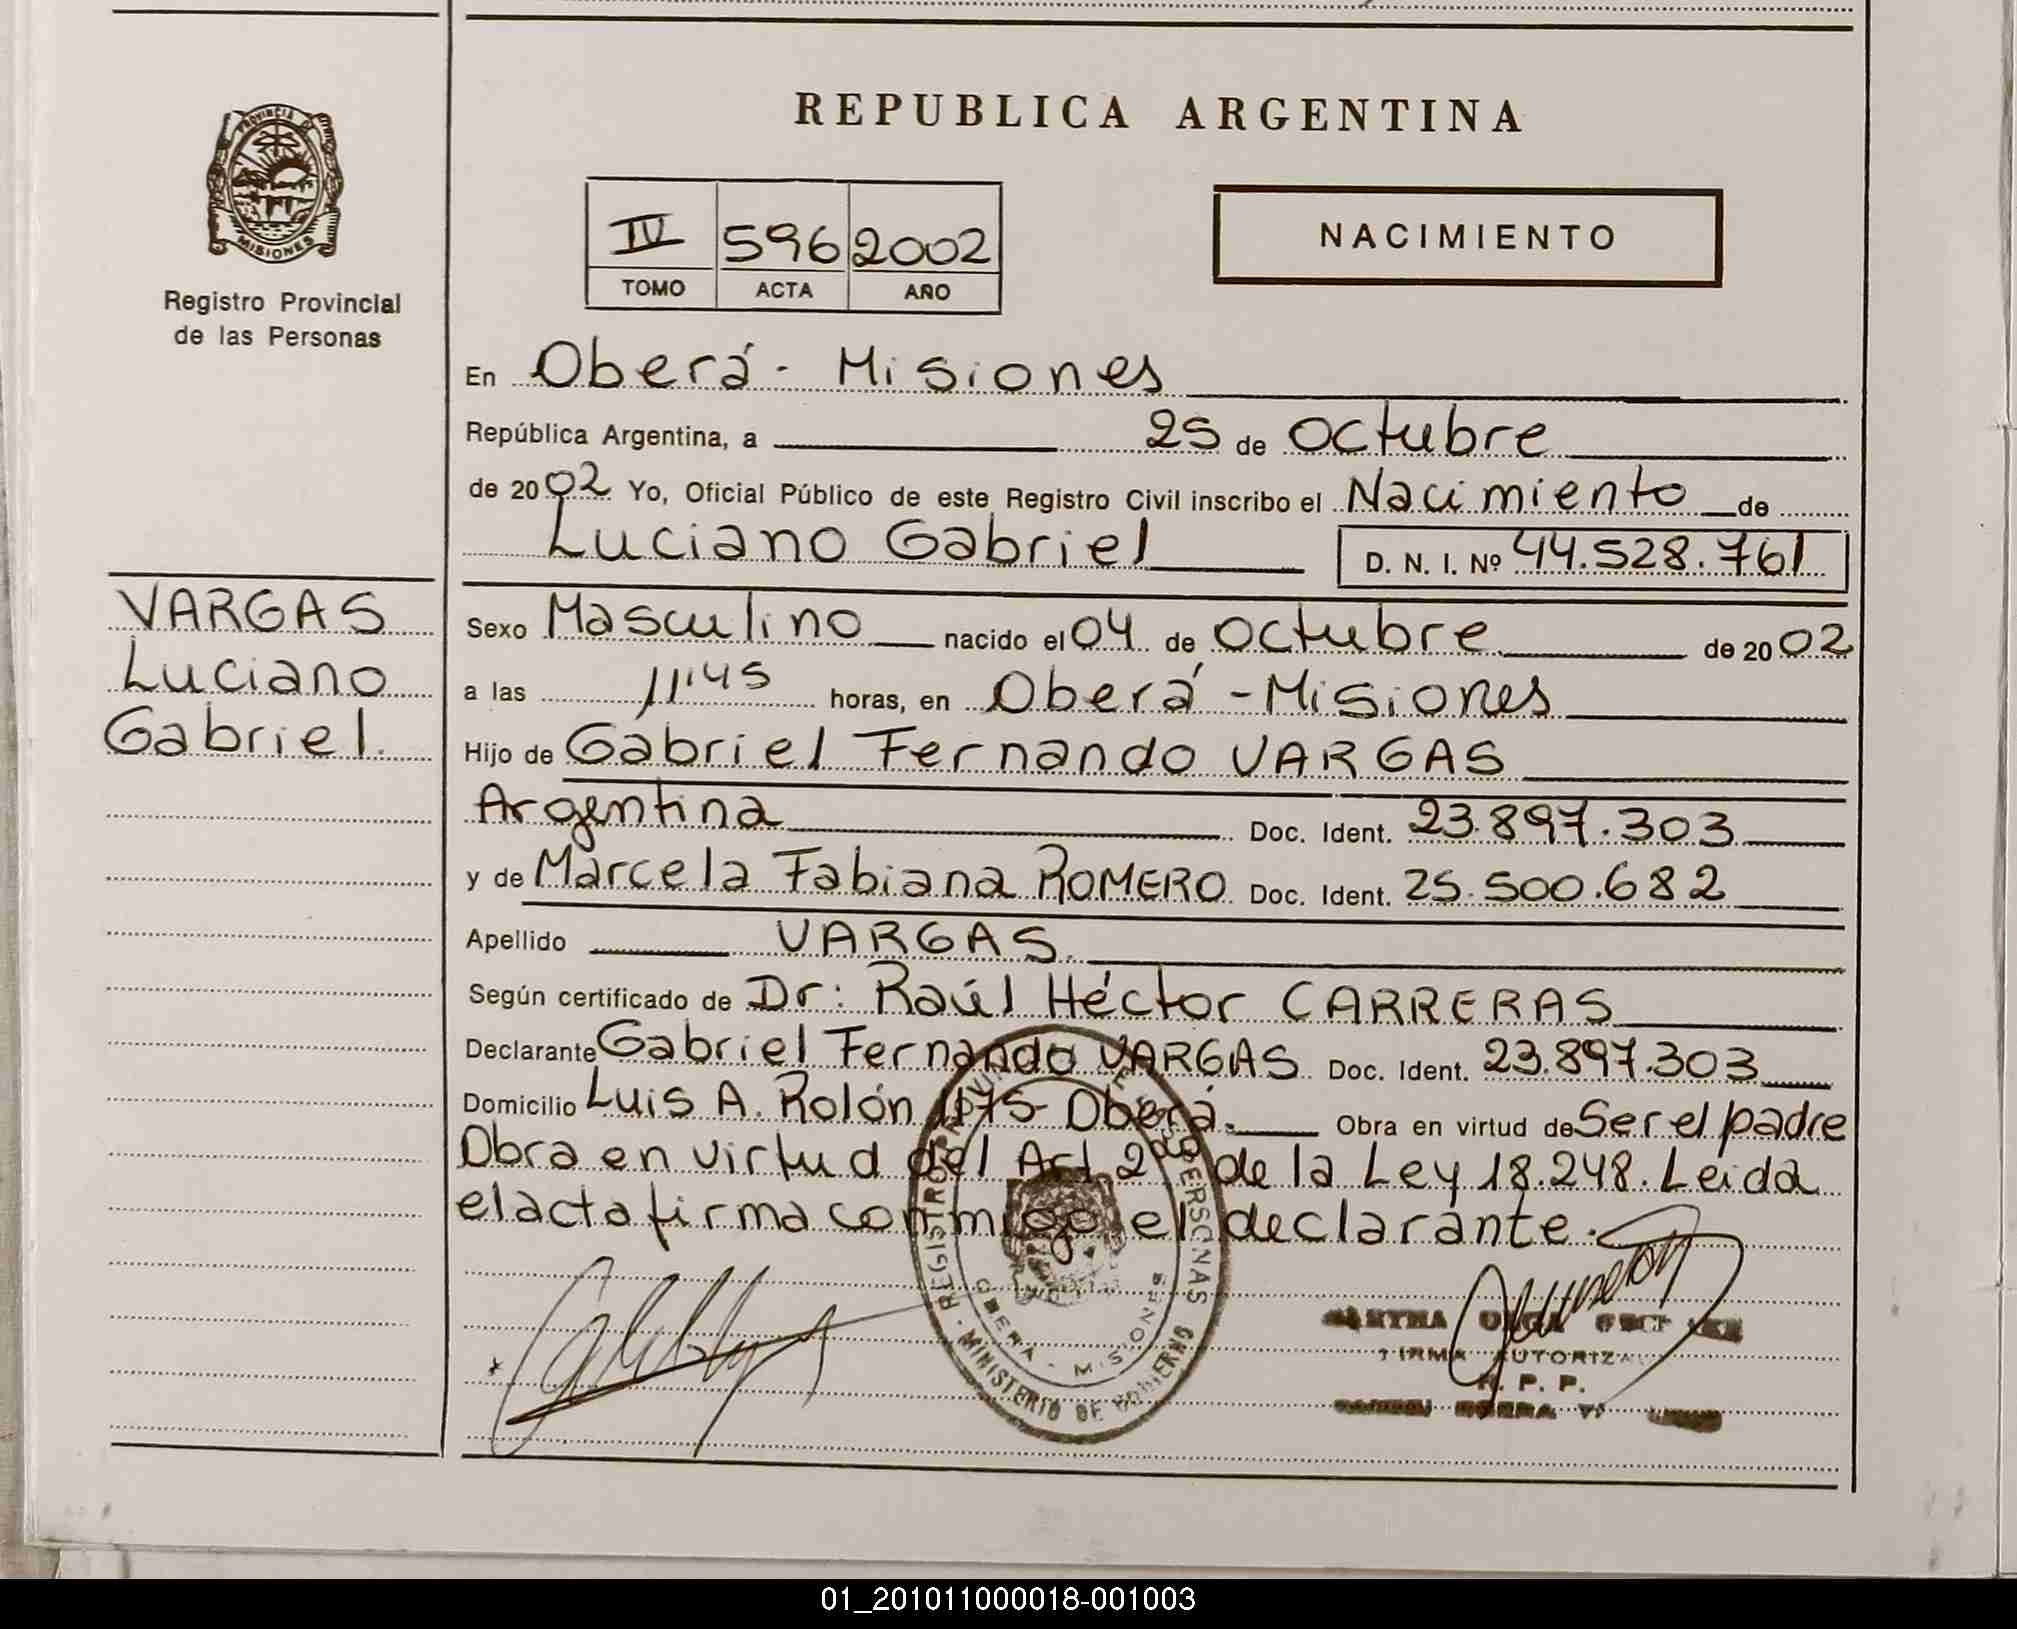 REPUBLICA ARGENTINA
PROVINCIA DE
MISIONES
Registro Provincial
de las Personas
IV 596 2002
TOMO ACTA AÑO
NACIMIENTO
En Oberá - Misiones
República Argentina, a 25 de Octubre
de 2002 Yo, Oficial Público de este Registro Civil inscribo el Nacimiento de
Luciano Gabriel D. N. I. Nº 44.528.761
VARGAS
Luciano
Gabriel.
Sexo Masculino nacido el 04 de Octubre de 2002
a las 11'45 horas, en Oberá - Misiones
Hijo de Gabriel Fernando VARGAS
Argentina Doc. Ident. 23.897.303
y de Marcela Fabiana ROMERO Doc. Ident. 25.500.682
Apellido VARGAS.
Según certificado de Dr: Raúl Héctor CARRERAS
Declarante Gabriel Fernando VARGAS Doc. Ident. 23.897.303
Domicilio Luis A. Rolón 1175- Oberá. Obra en virtud de Ser el padre
Obra en virtud del Art. 2do de la Ley 18.248. Leida
el acta firma conmigo el declarante.
REGISTRO PERSONAS
MINISTERIO DE GOBIERNO
OBERA - MISIONES
MARTHA OLGA
FIRMA AUTORIZA
R. P. P.
01_201011000018-001003